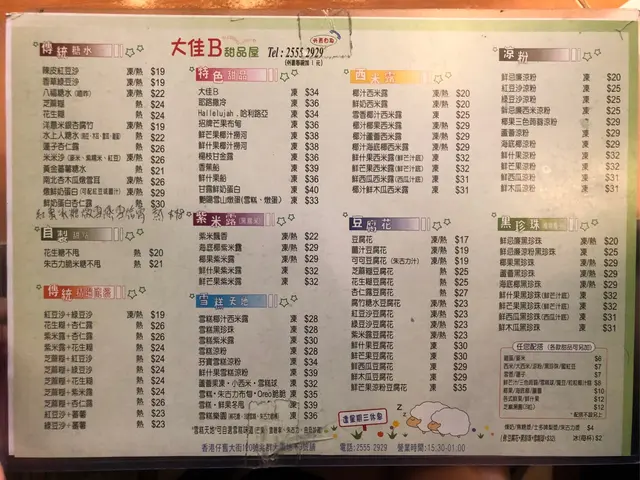 大佳B甜品屋
Tel : 2555 2929
傳統糖水
陳皮紅豆沙 凍/熱 $19
香草綠豆沙 凍/熱 $19
八福糖水 凍/熱 $22
芝麻糊 熱 $24
花生糊 熱 $24
洋薏米銀杏腐竹 凍/熱 $19
水上人糖水 熱 $22
蓮子杏仁露 熱 $26
米米沙 凍/熱 $26
黃金蕃薯糖水 熱 $21
南北杏木瓜燉雪耳 凍/熱 $26
燉鮮奶蛋白 凍/熱 $29
鮮奶燉蛋白 熱 $30
自製甜點
花生糖不甩 熱 $20
朱古力脆米糖不甩 熱 $21
傳統
紅豆沙+綠豆沙 凍/熱 $19
花生糊+杏仁露 熱 $26
紫米露+杏仁露 熱 $26
紫米露+花生糊 熱 $24
芝麻糊+紅豆沙 熱 $24
芝麻糊+綠豆沙 熱 $24
芝麻糊+花生糊 熱 $24
芝麻糊+紫米露 熱 $24
芝麻糊+杏仁露 熱 $26
紅豆沙+蕃薯 $23
綠豆沙+蕃薯 $23
特色甜品
大佳B 凍 $34
Hallelujah﹐哈利路亞 凍 $34
招牌芒果布甸 凍 $36
鮮芒果椰汁撈河 凍 $38
鮮什果椰汁撈河 凍 $38
楊枝甘金露 凍 $36
香蕉船 凍 $39
鮮什果船 凍 $36
甘露鮮奶蛋白 凍 $40
凍 $33
紫米露
紫米飄香 凍/熱 $22
海底椰紫米露 凍/熱 $29
椰果紫米露 凍/熱 $29
鮮什果紫米露 凍 $32
鮮芒果紫米露 凍 $32
雪糕天地
雪糕椰汁西米露 凍 $28
雪糕黑珍珠 凍 $28
雪糕紫米露 凍 $30
雪糕涼粉 凍 $28
芬寶雪糕涼粉 凍 $30
鮮什果雪糕涼粉 凍 $31
蘆薈果凍﹑小西米﹑雪糕球 凍 $32
雪糕﹑朱古力布甸﹑Oreo脆脆 凍 $35
雪糕﹑鮮果冬甩 凍 $39
雪糕樂園 凍 $36
西米露
椰汁西米露 凍/熱 $20
鮮奶西米露 凍/熱 $20
雪香椰汁西米露 凍 $25
椰汁椰果西米露 凍/熱 $29
椰汁蘆薈西米露 凍/熱 $29
椰汁海底椰西米露 凍/熱 $29
鮮什果西米露(鮮芒汁底) 凍 $32
鮮芒果西米露(鮮芒汁底) 凍 $32
鮮西瓜西米露(西瓜汁底) 凍 $31
椰汁鮮木瓜西米露 凍 $31
豆腐花
豆腐花 凍/熱 $17
薑汁豆腐花 凍/熱 $19
可可豆腐花(朱古力汁) 凍/熱 $19
芝麻糊豆腐花 熱 $25
花生糊豆腐花 熱 $25
杏仁露豆腐花 熱 $27
腐竹糖水豆腐花 凍/熱 $23
紅豆沙豆腐花 凍/熱 $23
綠豆沙豆腐花 凍/熱 $23
紫米露豆腐花 凍/熱 $23
鮮什果豆腐花 凍 $30
鮮芒果豆腐花 凍 $30
鮮西瓜豆腐花 凍 $29
鮮木瓜豆腐花 凍/熱 $29
鮮芒果紅豆豆腐花 凍 $35
逢星期三休息
涼粉
鮮忌廉涼粉 凍 $20
紅豆沙涼粉 凍 $25
綠豆沙涼粉 凍 $25
鮮忌廉西米涼粉 凍 $25
椰果三色蒟蒻涼粉 凍 $29
蘆薈涼粉 凍 $29
海底椰涼粉 凍 $29
鮮什果涼粉 凍 $32
鮮芒果涼粉 凍 $32
鮮西瓜涼粉 凍 $31
鮮木瓜涼粉 凍 $31
黑珍珠
鮮忌廉黑珍珠 凍/熱 $20
鮮忌廉涼粉黑珍珠 凍 $25
椰果黑珍珠 凍/熱 $29
蘆薈黑珍珠 凍/熱 $29
海底椰黑珍珠 凍/熱 $29
鮮什果黑珍珠(鮮芒汁底) 凍 $32
鮮芒果黑珍珠(鮮芒汁底) 凍 $32
鮮西瓜黑珍珠(西瓜汁底) 凍 $31
鮮木瓜黑珍珠 凍 $31
任您配搭(各款甜品可另加)
$6
$7
$8
$8
$10
$12
$12
電話:2555 2929 營業時間:15:30-01:00